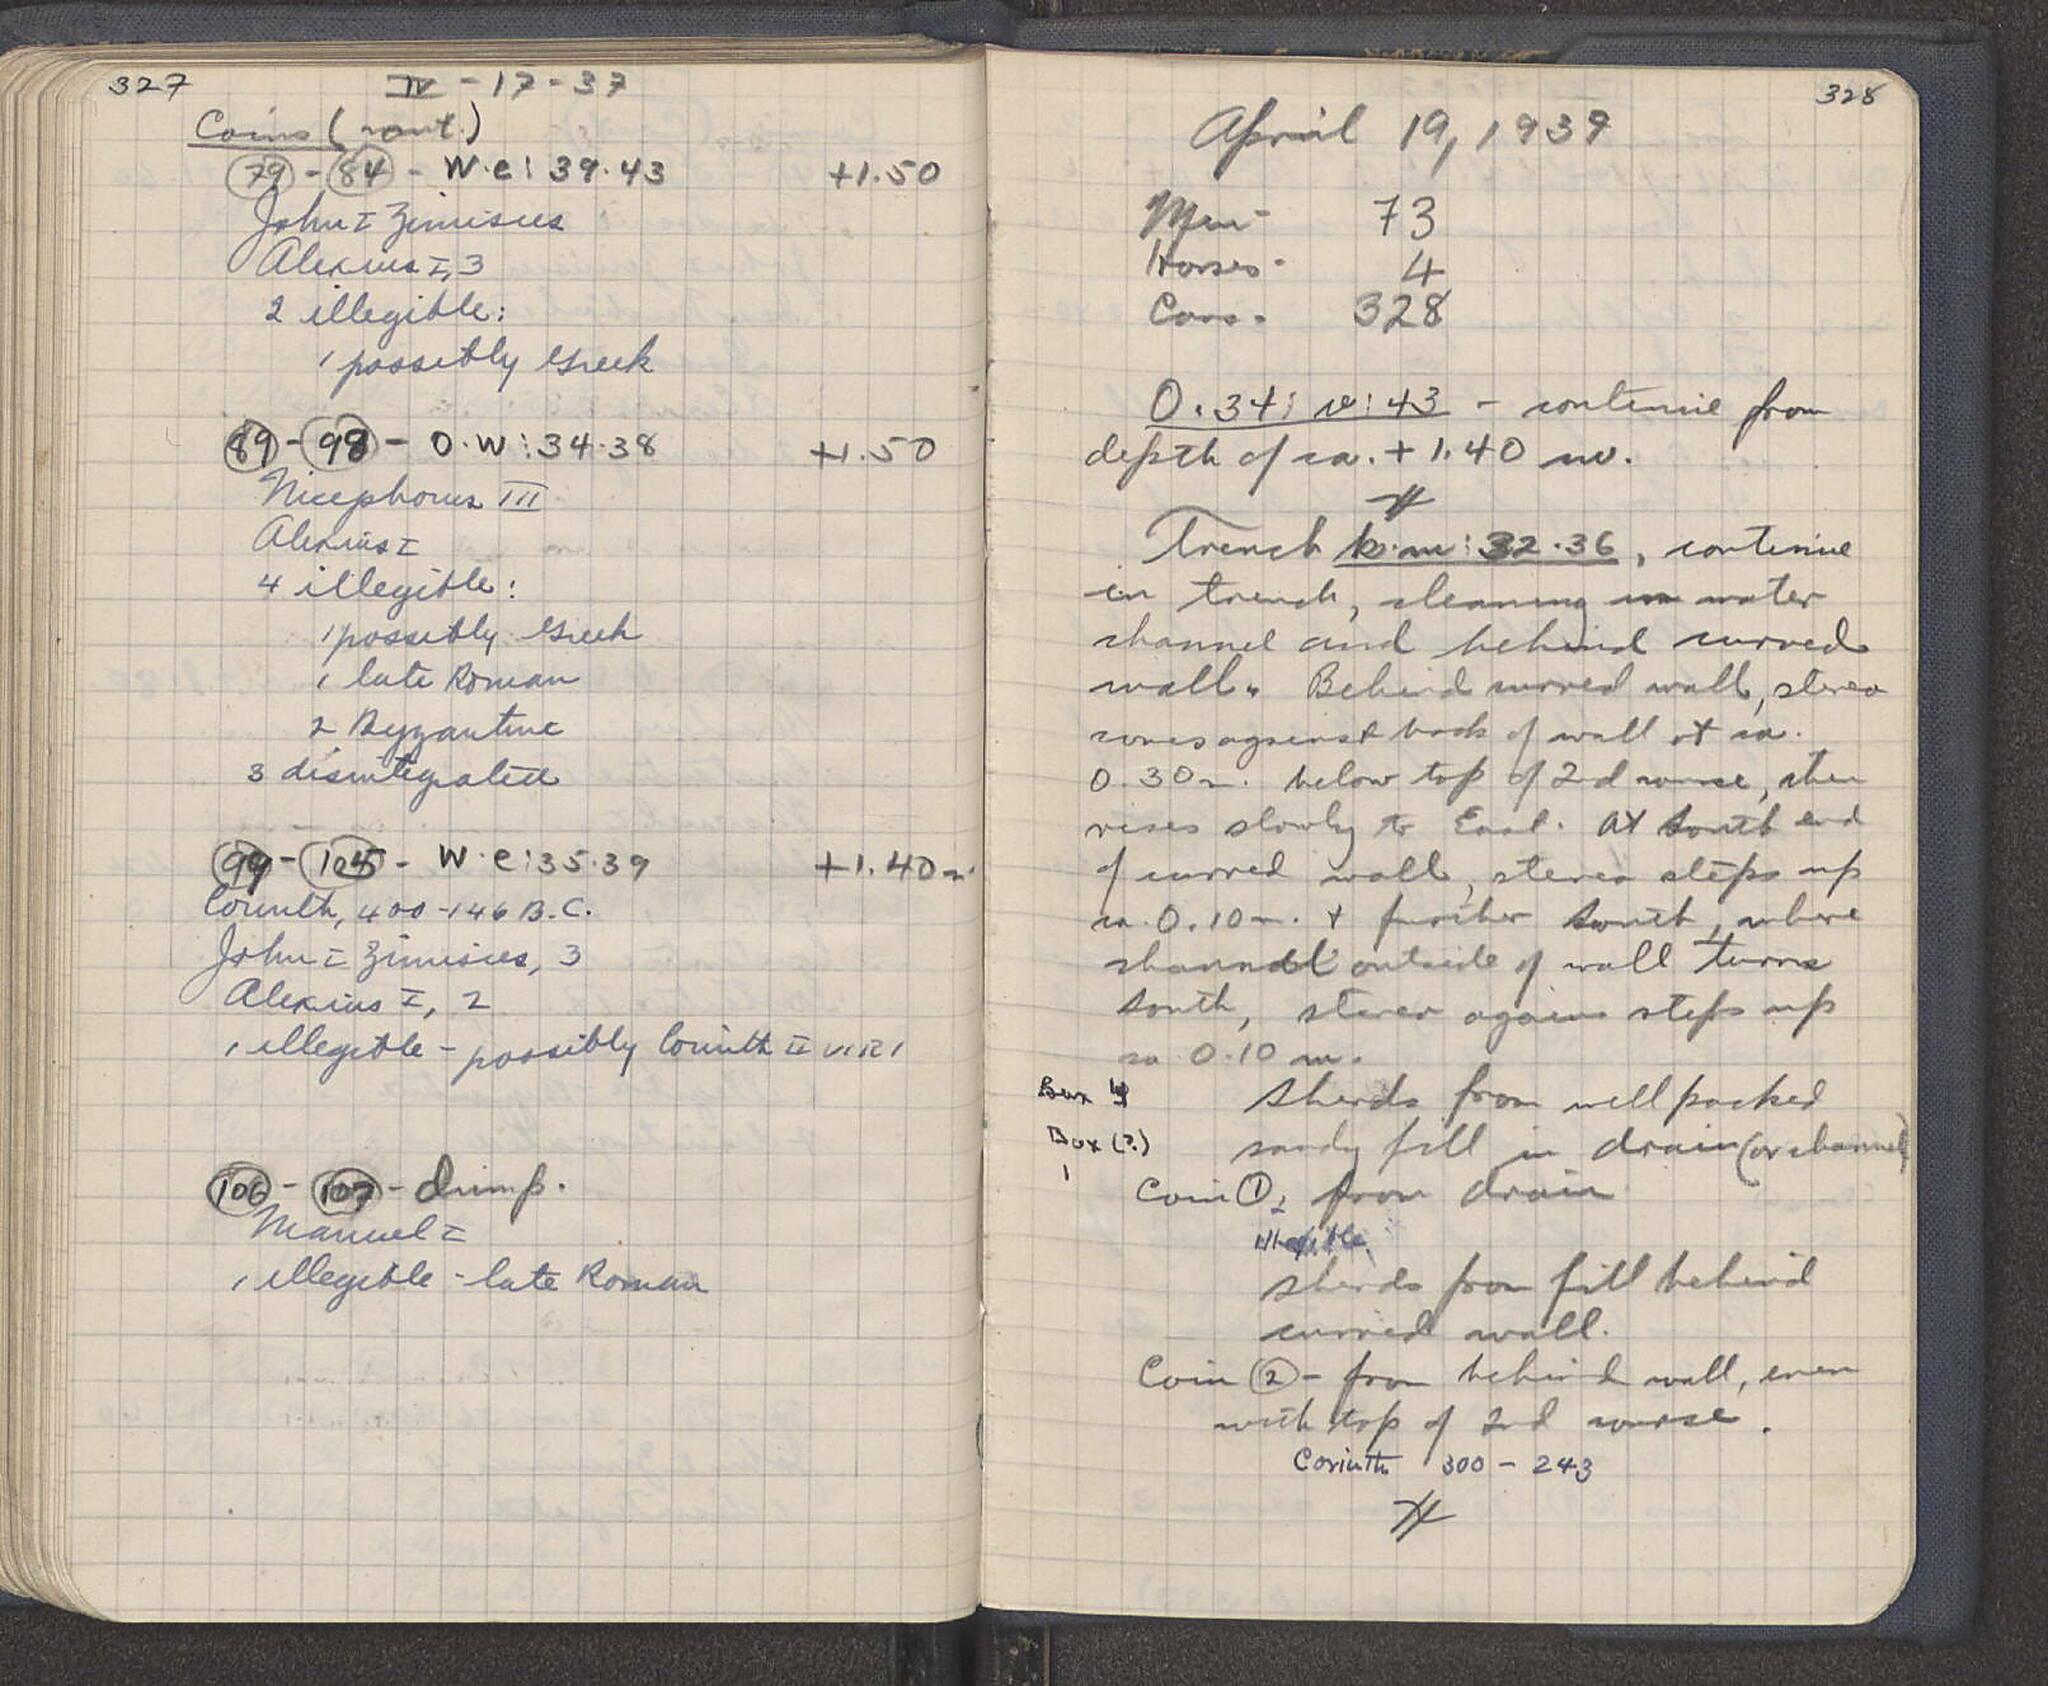 327
IV - 17 - 37
Coins (cont.)
79 - 84 - W.e: 39.43 +1.50
John I Zimisces
Alexius I, 3
2 illegible:
1 possibly Greek
89 - 98 - O.W: 34.38 +1.50
Nicephorus III
Alexius I
4 illegible:
1 possibly Greek
1 late Roman
2 Byzantine
3 disintegrated
99 - 105 - W.e: 35.39 +1.40 m
Corinth, 400-146 B.C.
John I Zimisces, 3
Alexius I, 2
1 illegible - possibly Corinth II VIRI
106 - 107 - dump.
Manuel I
1 illegible - late Roman
328
April 19, 1939
Men - 73
Horses - 4
Cars - 328
O.34: v: 43 - continue from
depth of ca. +1.40 m.
Trench k.m: 32.36, continue
in trench, cleaning water
channel and behind curved
wall. Behind curved wall, stereo
comes against back of wall at ca.
0.30 m. below top of 2nd course, then
rises slowly to East. At South end
of curved wall, stereo steps up
ca. 0.10 m. + further South, where
channel outside of wall turns
South, stereo again steps up
ca 0.10 m.
Box 4 Sherds from well packed
Box (?) sandy fill in drain (or channel)
1
Coin 1, from drain
illegible
Sherds from fill behind
curved wall.
Coin 2 - from behind wall, even
with top of 2nd course.
Corinth 300 - 243